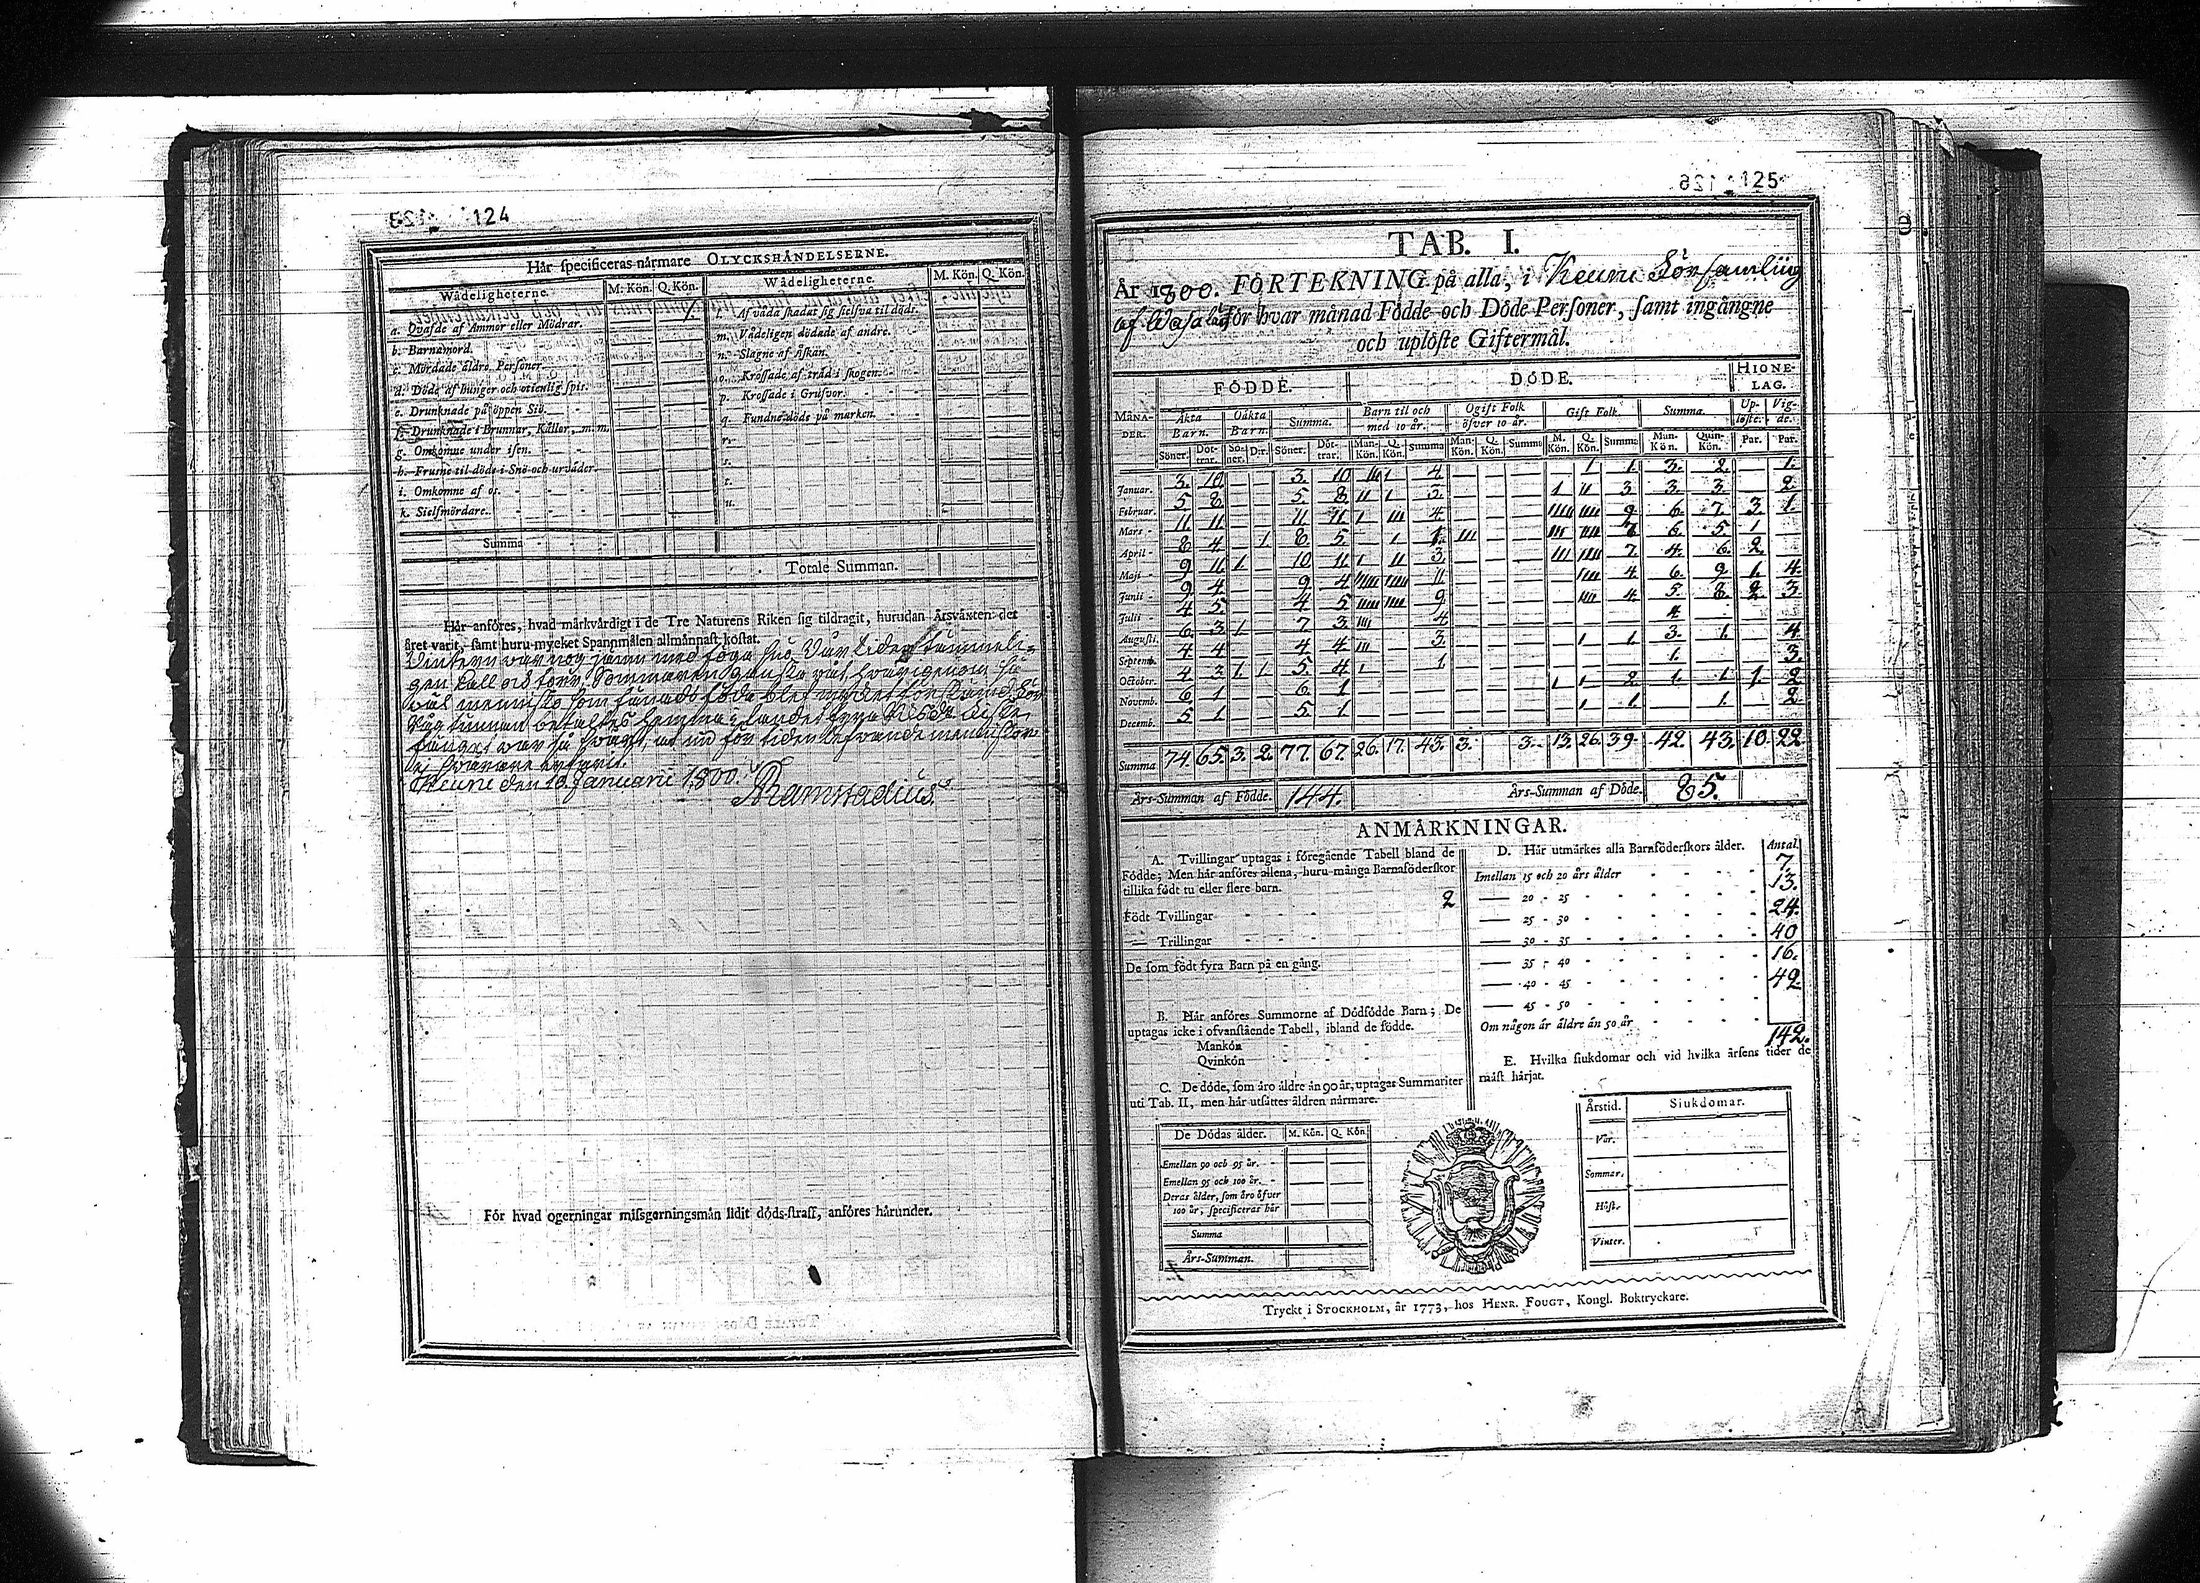 124
Hår specificeras nårmare OLYCKSHÅNDELSERNE.
Wådeligheterne. M. Kön. Q. Kön. Wådeligheterne. M. Kön. Q. Kön.
a. Qvafde af Ammor eller Mödrar. 1. l. Af våda skadat sig sielfva til döds.
b. Barnamord. m. Vådeligen dödade af andre.
c. Mördade äldre Personer n. Slagne af Åskan.
d. Döde af hunger och otienlig spis. o. Krossade af träd i skogen.
e. Drunknade på öppen Siö. p. Krossade i Grufvor.
f. Drunknade i Brunnar, Källor, m.m. q. Fundne döde på marken.
g. Omkomne under isen. r.
h. Frusne til döds i Snö och urväder s.
i. Omkomne af os. t.
k. Sielfmördare. u.
Summa
Totale Summan.
Hår anföres, hvad märkvärdigt i de Tre Naturens Riken sig tildragit, hurudan Årsväxten det
året varit, samt huru mycket Spannmålen allmännast kostat.
Vintern var nog jämn med föga snö. Vår tiden tämmeli=
gen kall och torr. Sommaren ganska våt
Keuru den 18 Januarii 1800.
För hvad ogerningar missgerningsmän lidit döds-straff, anföres härunder.
125
TAB. I.
År 1800. FÖRTEKNING på alla, i Keuru Församling
af Wasa län för hvar månad Födde och Döde Personer, samt ingångne
och uplöste Giftermål.
MÅNA-DER. FÖDDE. DÖDE. HIONE-LAG.
Äkta Barn. Oäkta Barn. Summa. Barn til och med 10 år. Ogift Folk öfver 10 år. Gift Folk. Summa. Up-löste. Vig-de.
Söner. Döt-trar. Sö-ner. Dr. Söner. Döt-trar. Man-Kön. Q. Kön. Summa Man-Kön. Q. Kön. Summa M. Kön. Q. Kön. Summa Man-Kön. Quin-Kön. Par. Par.
Januar. 3. 10. 3. 10 III I 4 1 1. 3. 2. 1.
Februar. 5 8 5. 8. II I 3. 1 II 3 3. 3. 2.
Mars 11 11 11 11 1 III 4 9 6. 7. 3. 1.
April 8 4 1. 8 5 1 1. III 7 6. 5. 1
Maji 9 11 1. 10 11 1 II 3 III IIII 7 4. 6. 2.
Junii 9 4 9 4 11 IIII 4 6. 9. 1. 4.
Julii 4 5 4 5 9 IIII 4. 5. 8. 2 3
Augusti. 6 3 1. 7 3 IIII 4 4
Septemb. 4 4 4 4 III 3. 1 1. 3. 1. 4
October. 4 3 1 1. 5. 4 1 1 1. 3.
Novemb. 6 1 6. 1 1 1 2 1. 1. 1. 2
Decemb. 5 1 5. 1 1 1 1. 2
Summa 74. 65. 3. 2. 77. 67. 26. 17. 43. 3. 3. 13. 26. 39. 42. 43. 10. 22.
Års-Summan af Födde. 144. Års-Summan af Döde. 85.
ANMÄRKNINGAR.
A. Tvillingar uptagas i föregående Tabell bland de
Födde; Men här anföres allena, huru många Barnaföderskor
tillika födt tu eller flere barn.
Födt Tvillingar 2
— Trillingar
De som födt fyra Barn på en gång.
B. Här anföres Summorne af Dödfödde Barn; De
uptagas icke i ofvanstående Tabell, ibland de födde.
Mankön
Qvinkön
C. De döde, som äro äldre än 90 år, uptagas Summariter
uti Tab. II, men här utsättes åldren närmare.
De Dödas ålder. M. Kön. Q. Kön
Emellan 90 och 95 år.
Emellan 95 och 100 år.
Deras ålder, som äro öfver
100 år, specificeras här
Summa
Års-Summan.
D. Här utmärkes alla Barnföderskors ålder. Antal.
Imellan 15 och 20 års ålder 7.
— 20 - 25 13.
— 25 - 30 24.
— 30 - 35 40
— 35 - 40 16.
— 40 - 45 42
— 45 - 50
Om någon är äldre än 50 år
142.
E. Hvilka siukdomar och vid hvilka årsens tider de
mäst härjat.
Årstid. Siukdomar.
Vår.
Sommar.
Höst.
Vinter.
Tryckt i STOCKHOLM, år 1773, hos HENR. FOUGT, Kongl. Boktryckare.